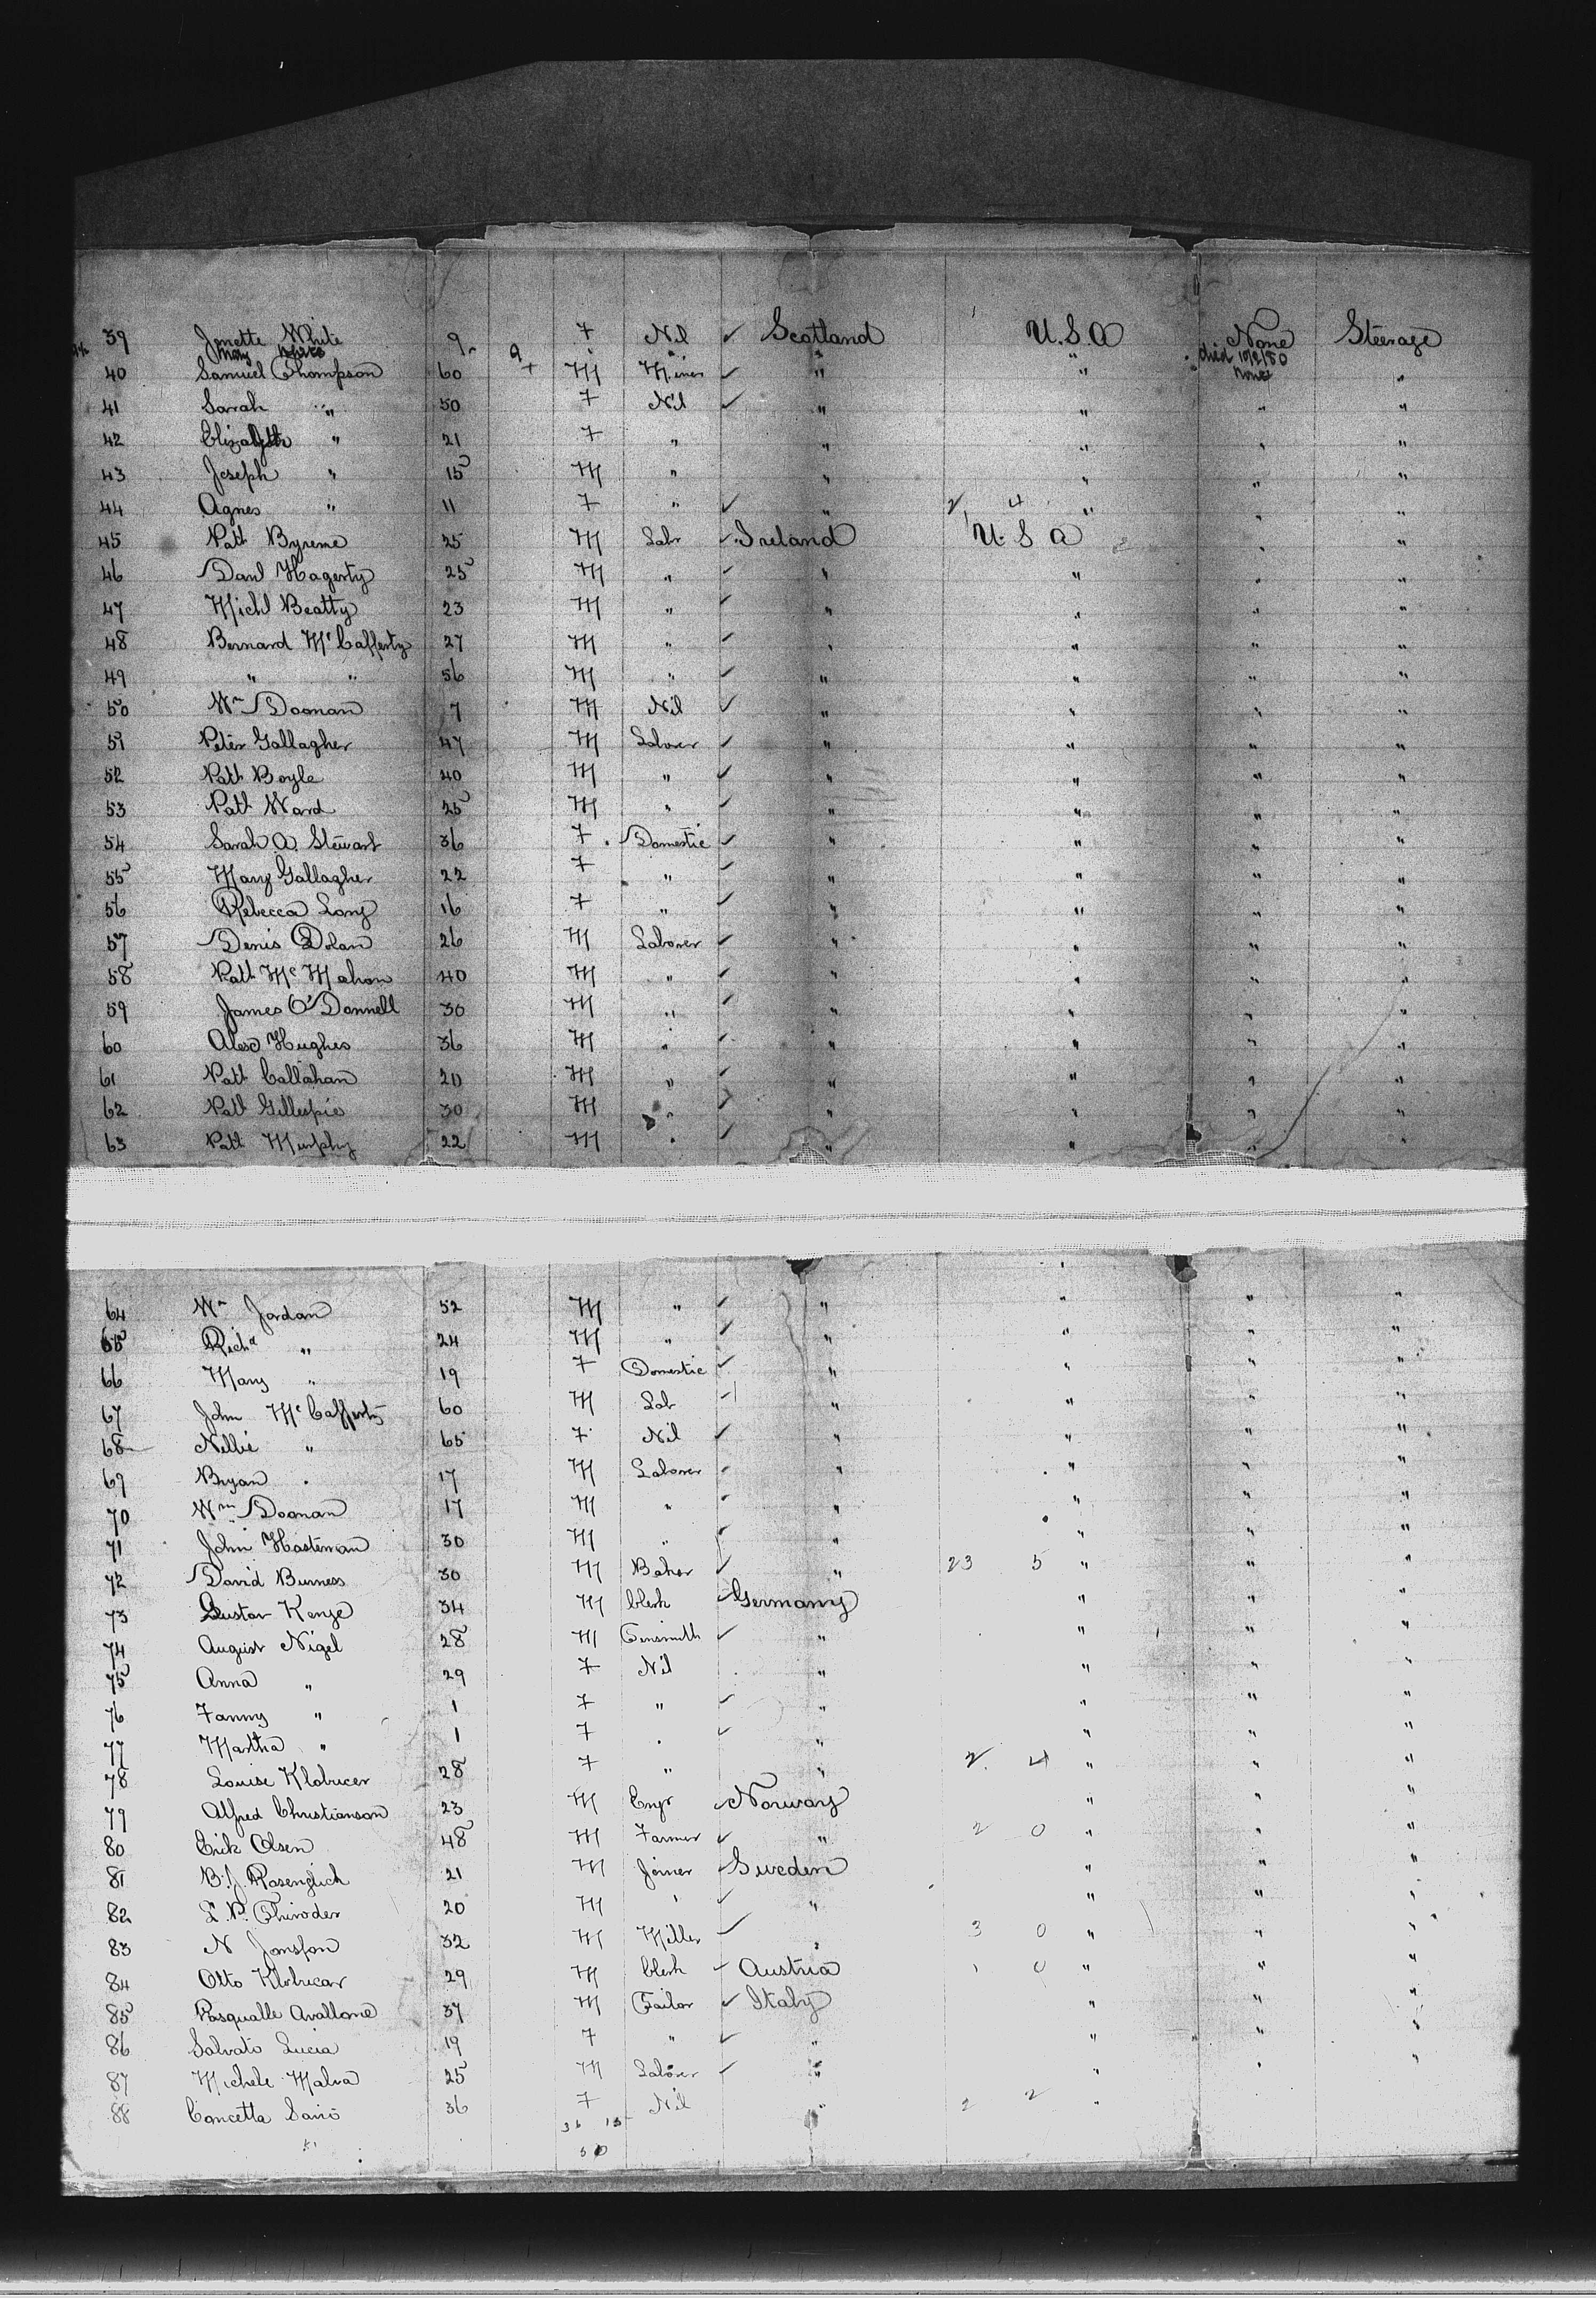 39 Jenette White 9 F Nil ✓ Scotland U.S.A None Steerage
Mary White 9 " " " died 10/2/80
40 Samuel Thompson 60 M Miner ✓ " " None "
41 Sarah " 50 F Nil ✓ " " " "
42 Elizabeth " 21 F " " " " "
43 Joseph " 15 M " " " " "
44 Agnes " 11 F " ✓ " 2 4 " " "
45 Patt Byrene 25 M Labr ✓ Ireland U.S.A " "
46 Danl Hagerty 25 M " ✓ " " " "
47 Michl Beatty 23 M " ✓ " " " "
48 Bernard McCafferty 27 M " ✓ " " " "
49 " " 56 M " ✓ " " " "
50 Wm Doonan 7 M Nil ✓ " " " "
51 Peter Gallagher 47 M Laborer ✓ " " " "
52 Patt Boyle 40 M " ✓ " " " "
53 Patt Ward 25 M " ✓ " " " "
54 Sarah A. Stewart 36 F Domestic ✓ " " " "
55 Mary Gallagher 22 F " ✓ " " " "
56 Rebecca Long 16 F " ✓ " " " "
57 Denis Dolan 26 M Laborer ✓ " " " "
58 Patt McMahon 40 M " ✓ " " " "
59 James O'Donnell 30 M " ✓ " " " "
60 Alex Hughes 36 M " ✓ " " " "
61 Patt Callahan 20 M " ✓ " " " "
62 Patt Gillespie 30 M " ✓ " " " "
63 Patt Murphy 22 M " ✓ " " " "
64 Wm Jordan 52 M " ✓ " " " "
65 Richd " 24 M " ✓ " " " "
66 Mary " 19 F Domestic ✓ " " " "
67 John McCafferty 60 M Lab ✓ " " " "
68 Nellie " 65 F Nil ✓ " " " "
69 Bryan " 17 M Laborer ✓ " " " "
70 Wm Doonan 17 M " ✓ " " " "
71 John Hasteman 30 M " ✓ " " " "
72 David Burness 30 M Baker ✓ " 23 5 " " "
73 Gustav Kenze 34 M Clerk ✓ Germany " " "
74 August Nigel 28 M Tinsmith ✓ " " " "
75 Anna " 29 F Nil " " " "
76 Fanny " 1 F " ✓ " " " "
77 Martha " 1 F " ✓ " " " "
78 Louise Klobucer 28 F " " 2 4 " " "
79 Alfred Christianson 23 M Engr ✓ Norway " " "
80 Erik Olsen 48 M Farmer ✓ " 2 0 " " "
81 B.J. 21 M Joiner ✓ Sweden " " "
82 20 M " ✓ " " " "
83 N Jonsson 32 M Miller ✓ " 3 0 " " "
84 Otto Klobucar 29 M Clerk ✓ Austria 1 0 " " "
85 Pasqualle Avallone 37 M Tailor ✓ Italy " " "
86 Salvato Lucia 19 F " ✓ " " " "
87 Michele Malva 25 M Laborer ✓ " " " "
88 Concetta Savio 36 F Nil " 2 2 "
36 15
50